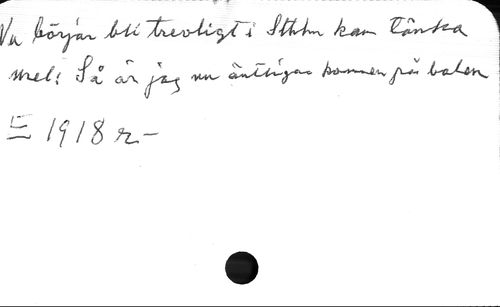 Nu börjar bli trevligt i Sthlm kan tänka
mel: Så är jag nu äntligen kommen på balen
1918 r-